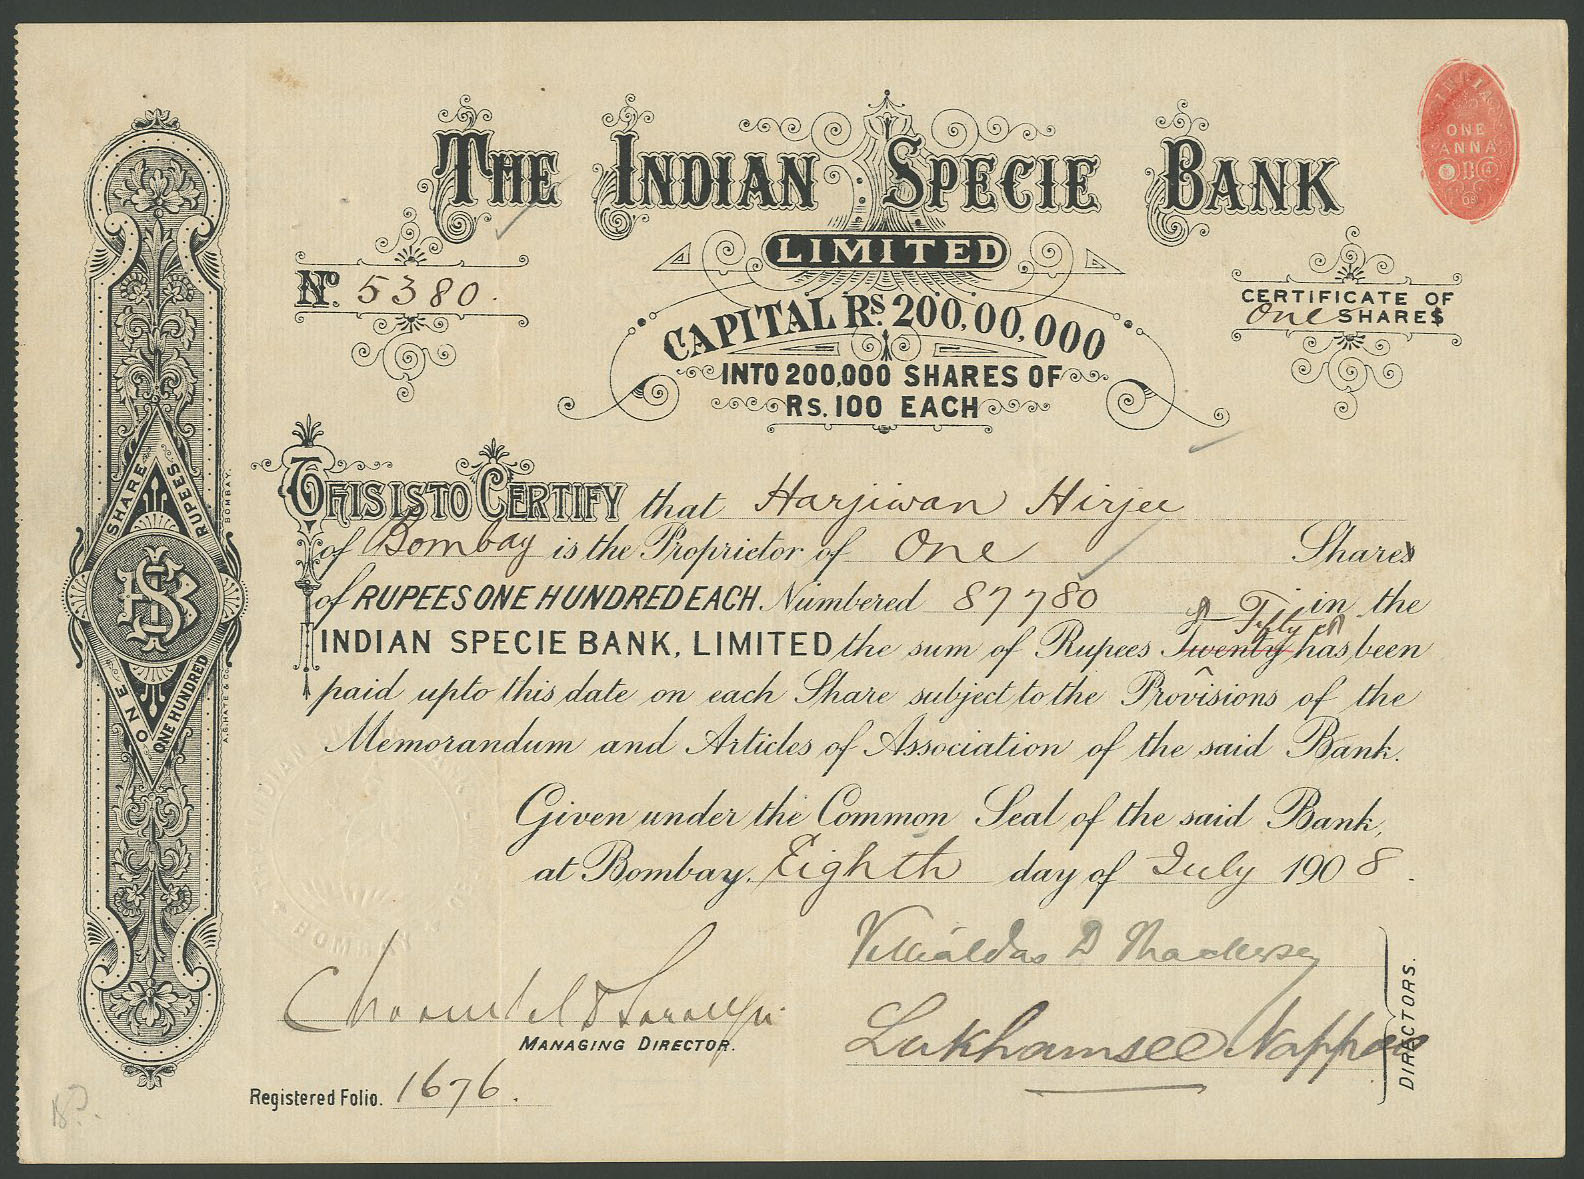 THE INDIAN SPECIE BANK
LIMITED
INDIA
ONE
ANNA
No. 5380.
CERTIFICATE OF
One SHARES
CAPITAL RS. 200,00,000
INTO 200,000 SHARES OF
RS. 100 EACH
THIS IS TO CERTIFY that Harjiwan Hirjee
of Bombay is the Proprietor of One Shares
of RUPEES ONE HUNDRED EACH. Numbered 87780 in the
Fifty
INDIAN SPECIE BANK, LIMITED the sum of Rupees Twenty has been
paid upto this date on each Share subject to the Provisions of the
Memorandum and Articles of Association of the said Bank.
Given under the Common Seal of the said Bank,
at Bombay, Eighth day of July 1908.
MANAGING DIRECTOR.
Lukhamsee Nappoo
DIRECTORS.
Registered Folio. 1676.
ONE SHARE
ONE HUNDRED RUPEES
ISB
A.S. HATE & CO. BOMBAY.
THE INDIAN SPECIE BANK LIMITED
BOMBAY